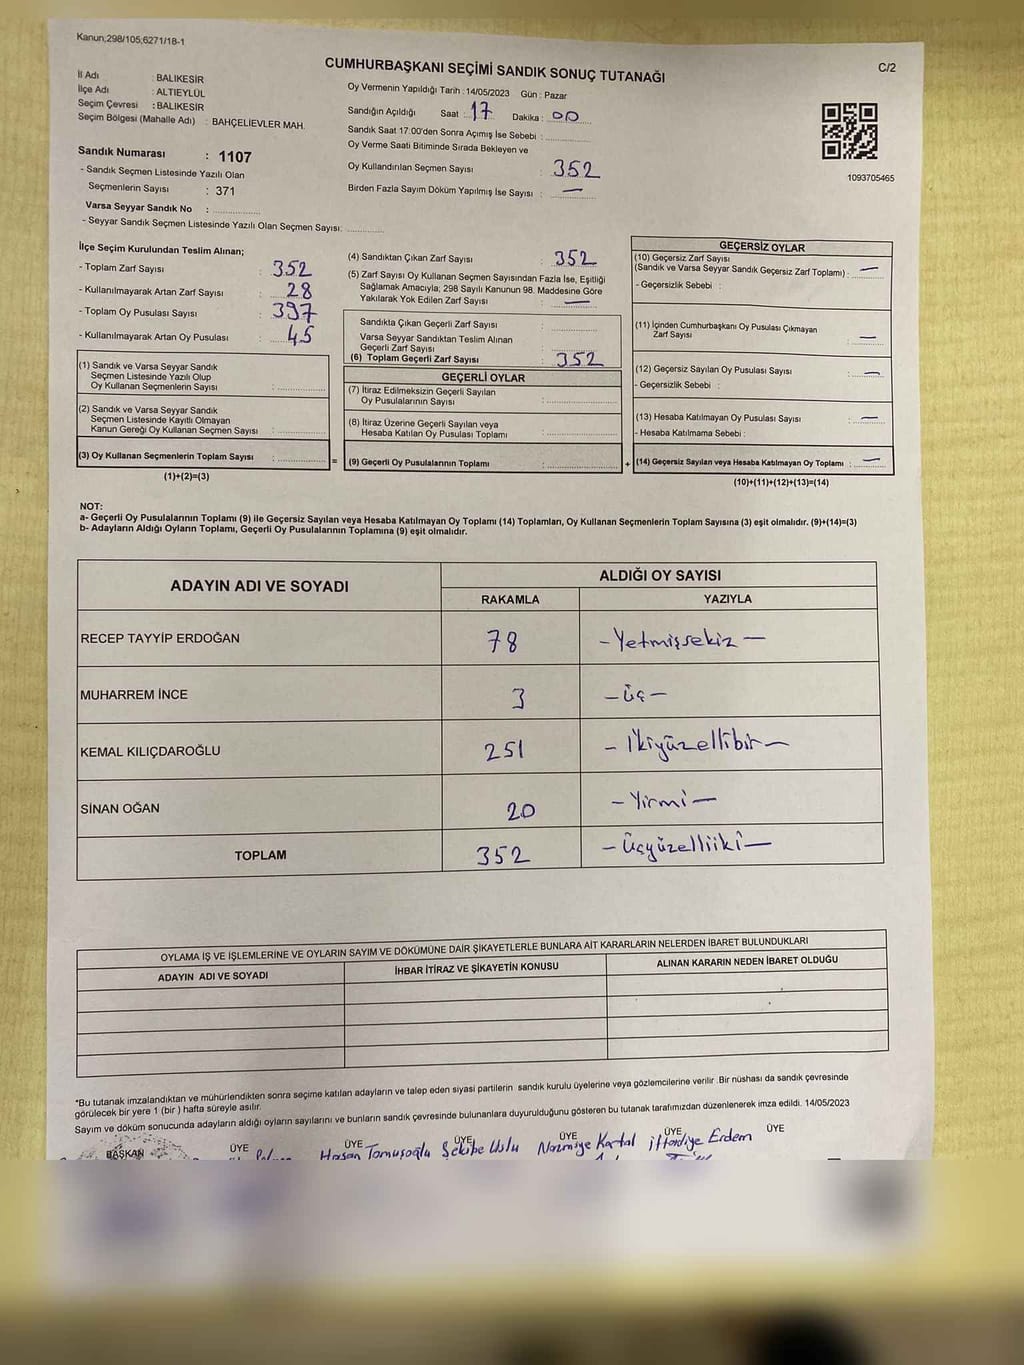 Kanun;298/105;6271/18-1
CUMHURBAŞKANI SEÇİMİ SANDIK SONUÇ TUTANAĞI
C/2
İl Adı : BALIKESİR
İlçe Adı : ALTIEYLÜL
Seçim Çevresi : BALIKESİR
Seçim Bölgesi (Mahalle Adı) : BAHÇELİEVLER MAH.
Sandık Numarası : 1107
- Sandık Seçmen Listesinde Yazılı Olan
Seçmenlerin Sayısı : 371
Varsa Seyyar Sandık No :
- Seyyar Sandık Seçmen Listesinde Yazılı Olan Seçmen Sayısı:
Oy Vermenin Yapıldığı Tarih : 14/05/2023 Gün : Pazar
Sandığın Açıldığı Saat : 17 Dakika : 00
Sandık Saat 17.00'den Sonra Açımış İse Sebebi :
Oy Verme Saati Bitiminde Sırada Bekleyen ve
Oy Kullandırılan Seçmen Sayısı : 352
Birden Fazla Sayım Döküm Yapılmış İse Sayısı : —
1093705465
İlçe Seçim Kurulundan Teslim Alınan;
- Toplam Zarf Sayısı : 352
- Kullanılmayarak Artan Zarf Sayısı : 28
- Toplam Oy Pusulası Sayısı : 397
- Kullanılmayarak Artan Oy Pusulası : 45
(1) Sandık ve Varsa Seyyar Sandık
Seçmen Listesinde Yazılı Olup
Oy Kullanan Seçmenlerin Sayısı :
(2) Sandık ve Varsa Seyyar Sandık
Seçmen Listesinde Kayıtlı Olmayan
Kanun Gereği Oy Kullanan Seçmen Sayısı :
(3) Oy Kullanan Seçmenlerin Toplam Sayısı :
(1)+(2)=(3)
(4) Sandıktan Çıkan Zarf Sayısı : 352
(5) Zarf Sayısı Oy Kullanan Seçmen Sayısından Fazla İse, Eşitliği
Sağlamak Amacıyla; 298 Sayılı Kanunun 98. Maddesine Göre
Yakılarak Yok Edilen Zarf Sayısı : —
Sandıkta Çıkan Geçerli Zarf Sayısı :
Varsa Seyyar Sandıktan Teslim Alınan
Geçerli Zarf Sayısı :
(6) Toplam Geçerli Zarf Sayısı : 352
GEÇERLİ OYLAR
(7) İtiraz Edilmeksizin Geçerli Sayılan
Oy Pusulalarının Sayısı :
(8) İtiraz Üzerine Geçerli Sayılan veya
Hesaba Katılan Oy Pusulası Toplamı :
= (9) Geçerli Oy Pusulalarının Toplamı :
GEÇERSİZ OYLAR
(10) Geçersiz Zarf Sayısı
(Sandık ve Varsa Seyyar Sandık Geçersiz Zarf Toplamı) : —
- Geçersizlik Sebebi :
(11) İçinden Cumhurbaşkanı Oy Pusulası Çıkmayan
Zarf Sayısı : —
(12) Geçersiz Sayılan Oy Pusulası Sayısı : —
- Geçersizlik Sebebi :
(13) Hesaba Katılmayan Oy Pusulası Sayısı : —
- Hesaba Katılmama Sebebi :
+ (14) Geçersiz Sayılan veya Hesaba Katılmayan Oy Toplamı : —
(10)+(11)+(12)+(13)=(14)
NOT:
a- Geçerli Oy Pusulalarının Toplamı (9) ile Geçersiz Sayılan veya Hesaba Katılmayan Oy Toplamı (14) Toplamları, Oy Kullanan Seçmenlerin Toplam Sayısına (3) eşit olmalıdır. (9)+(14)=(3)
b- Adayların Aldığı Oyların Toplamı, Geçerli Oy Pusulalarının Toplamına (9) eşit olmalıdır.
ADAYIN ADI VE SOYADI ALDIĞI OY SAYISI
RAKAMLA YAZIYLA
RECEP TAYYİP ERDOĞAN 78 - Yetmişsekiz -
MUHARREM İNCE 3 - Üç -
KEMAL KILIÇDAROĞLU 251 - İkiyüzellibir -
SİNAN OĞAN 20 - Yirmi -
TOPLAM 352 - Üçyüzelliiki -
OYLAMA İŞ VE İŞLEMLERİNE VE OYLARIN SAYIM VE DÖKÜMÜNE DAİR ŞİKAYETLERLE BUNLARA AİT KARARLARIN NELERDEN İBARET BULUNDUKLARI
ADAYIN ADI VE SOYADI İHBAR İTİRAZ VE ŞİKAYETİN KONUSU ALINAN KARARIN NEDEN İBARET OLDUĞU
*Bu tutanak imzalandıktan ve mühürlendikten sonra seçime katılan adayların ve talep eden siyasi partilerin sandık kurulu üyelerine veya gözlemcilerine verilir .Bir nüshası da sandık çevresinde
görülecek bir yere 1 (bir ) hafta süreyle asılır.
Sayım ve döküm sonucunda adayların aldığı oyların sayılarını ve bunların sandık çevresinde bulunanlara duyurulduğunu gösteren bu tutanak tarafımızdan düzenlenerek imza edildi. 14/05/2023
BAŞKAN ÜYE ÜYE ÜYE ÜYE ÜYE ÜYE
Hasan Tomuşoğlu Şekibe Uslu Nazmiye Kartal İftardiye Erdem